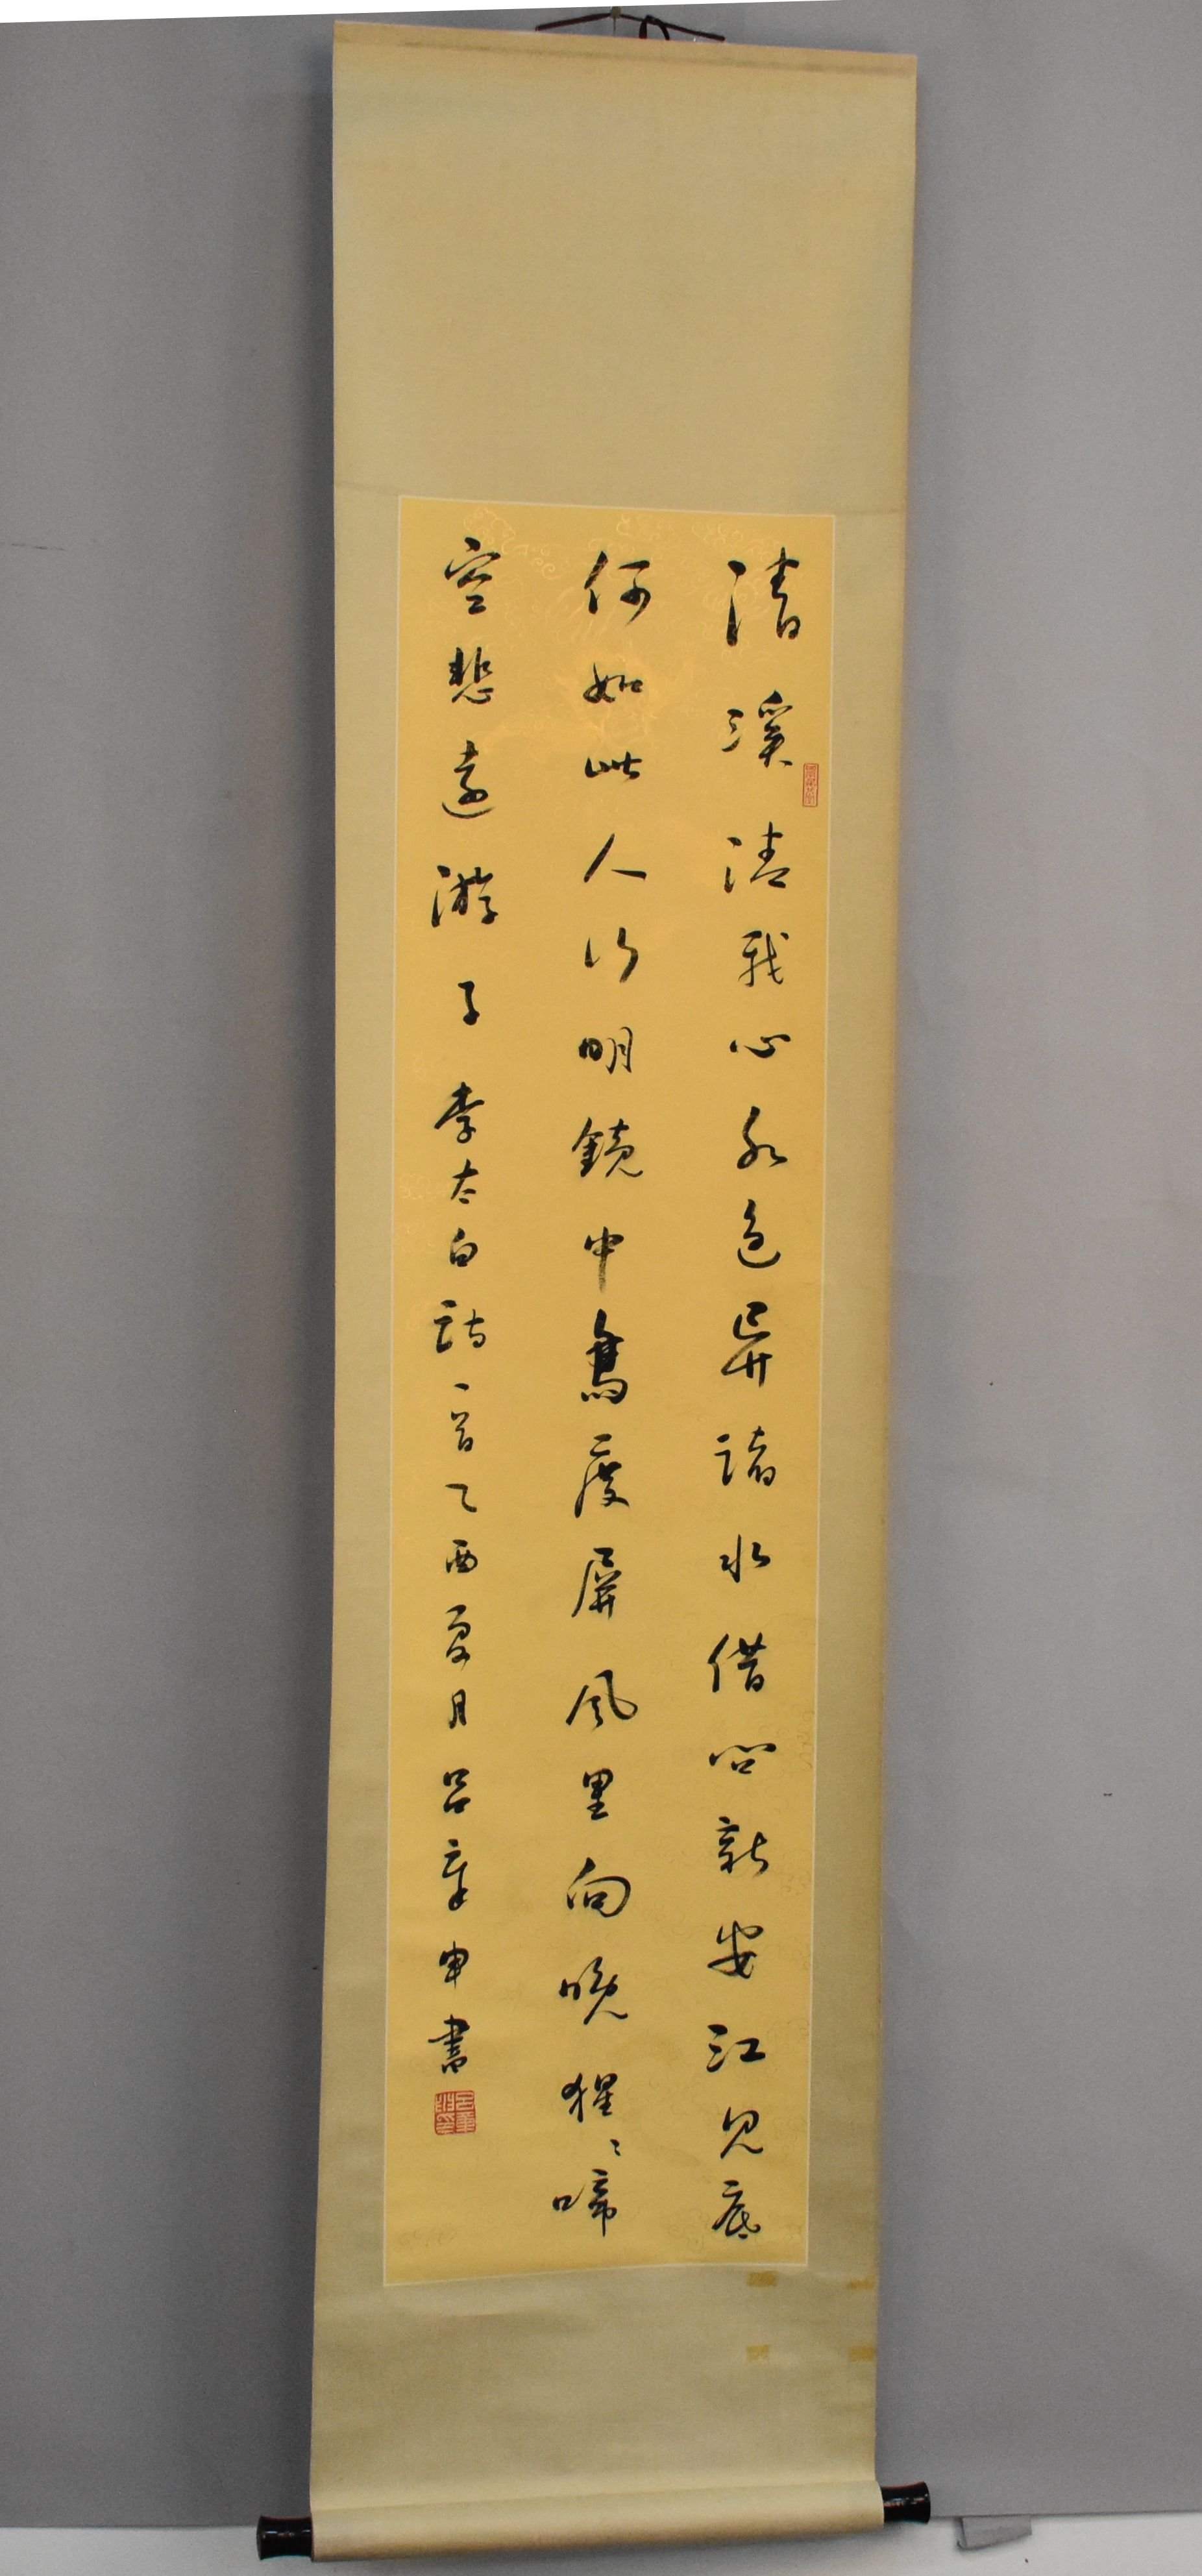 清溪清我心水色異諸水借問新安江見底
何如此人行明鏡中鳥度屏風里向晚猩〻啼
空悲遠游子李太白詩一首乙酉夏月呂章申書